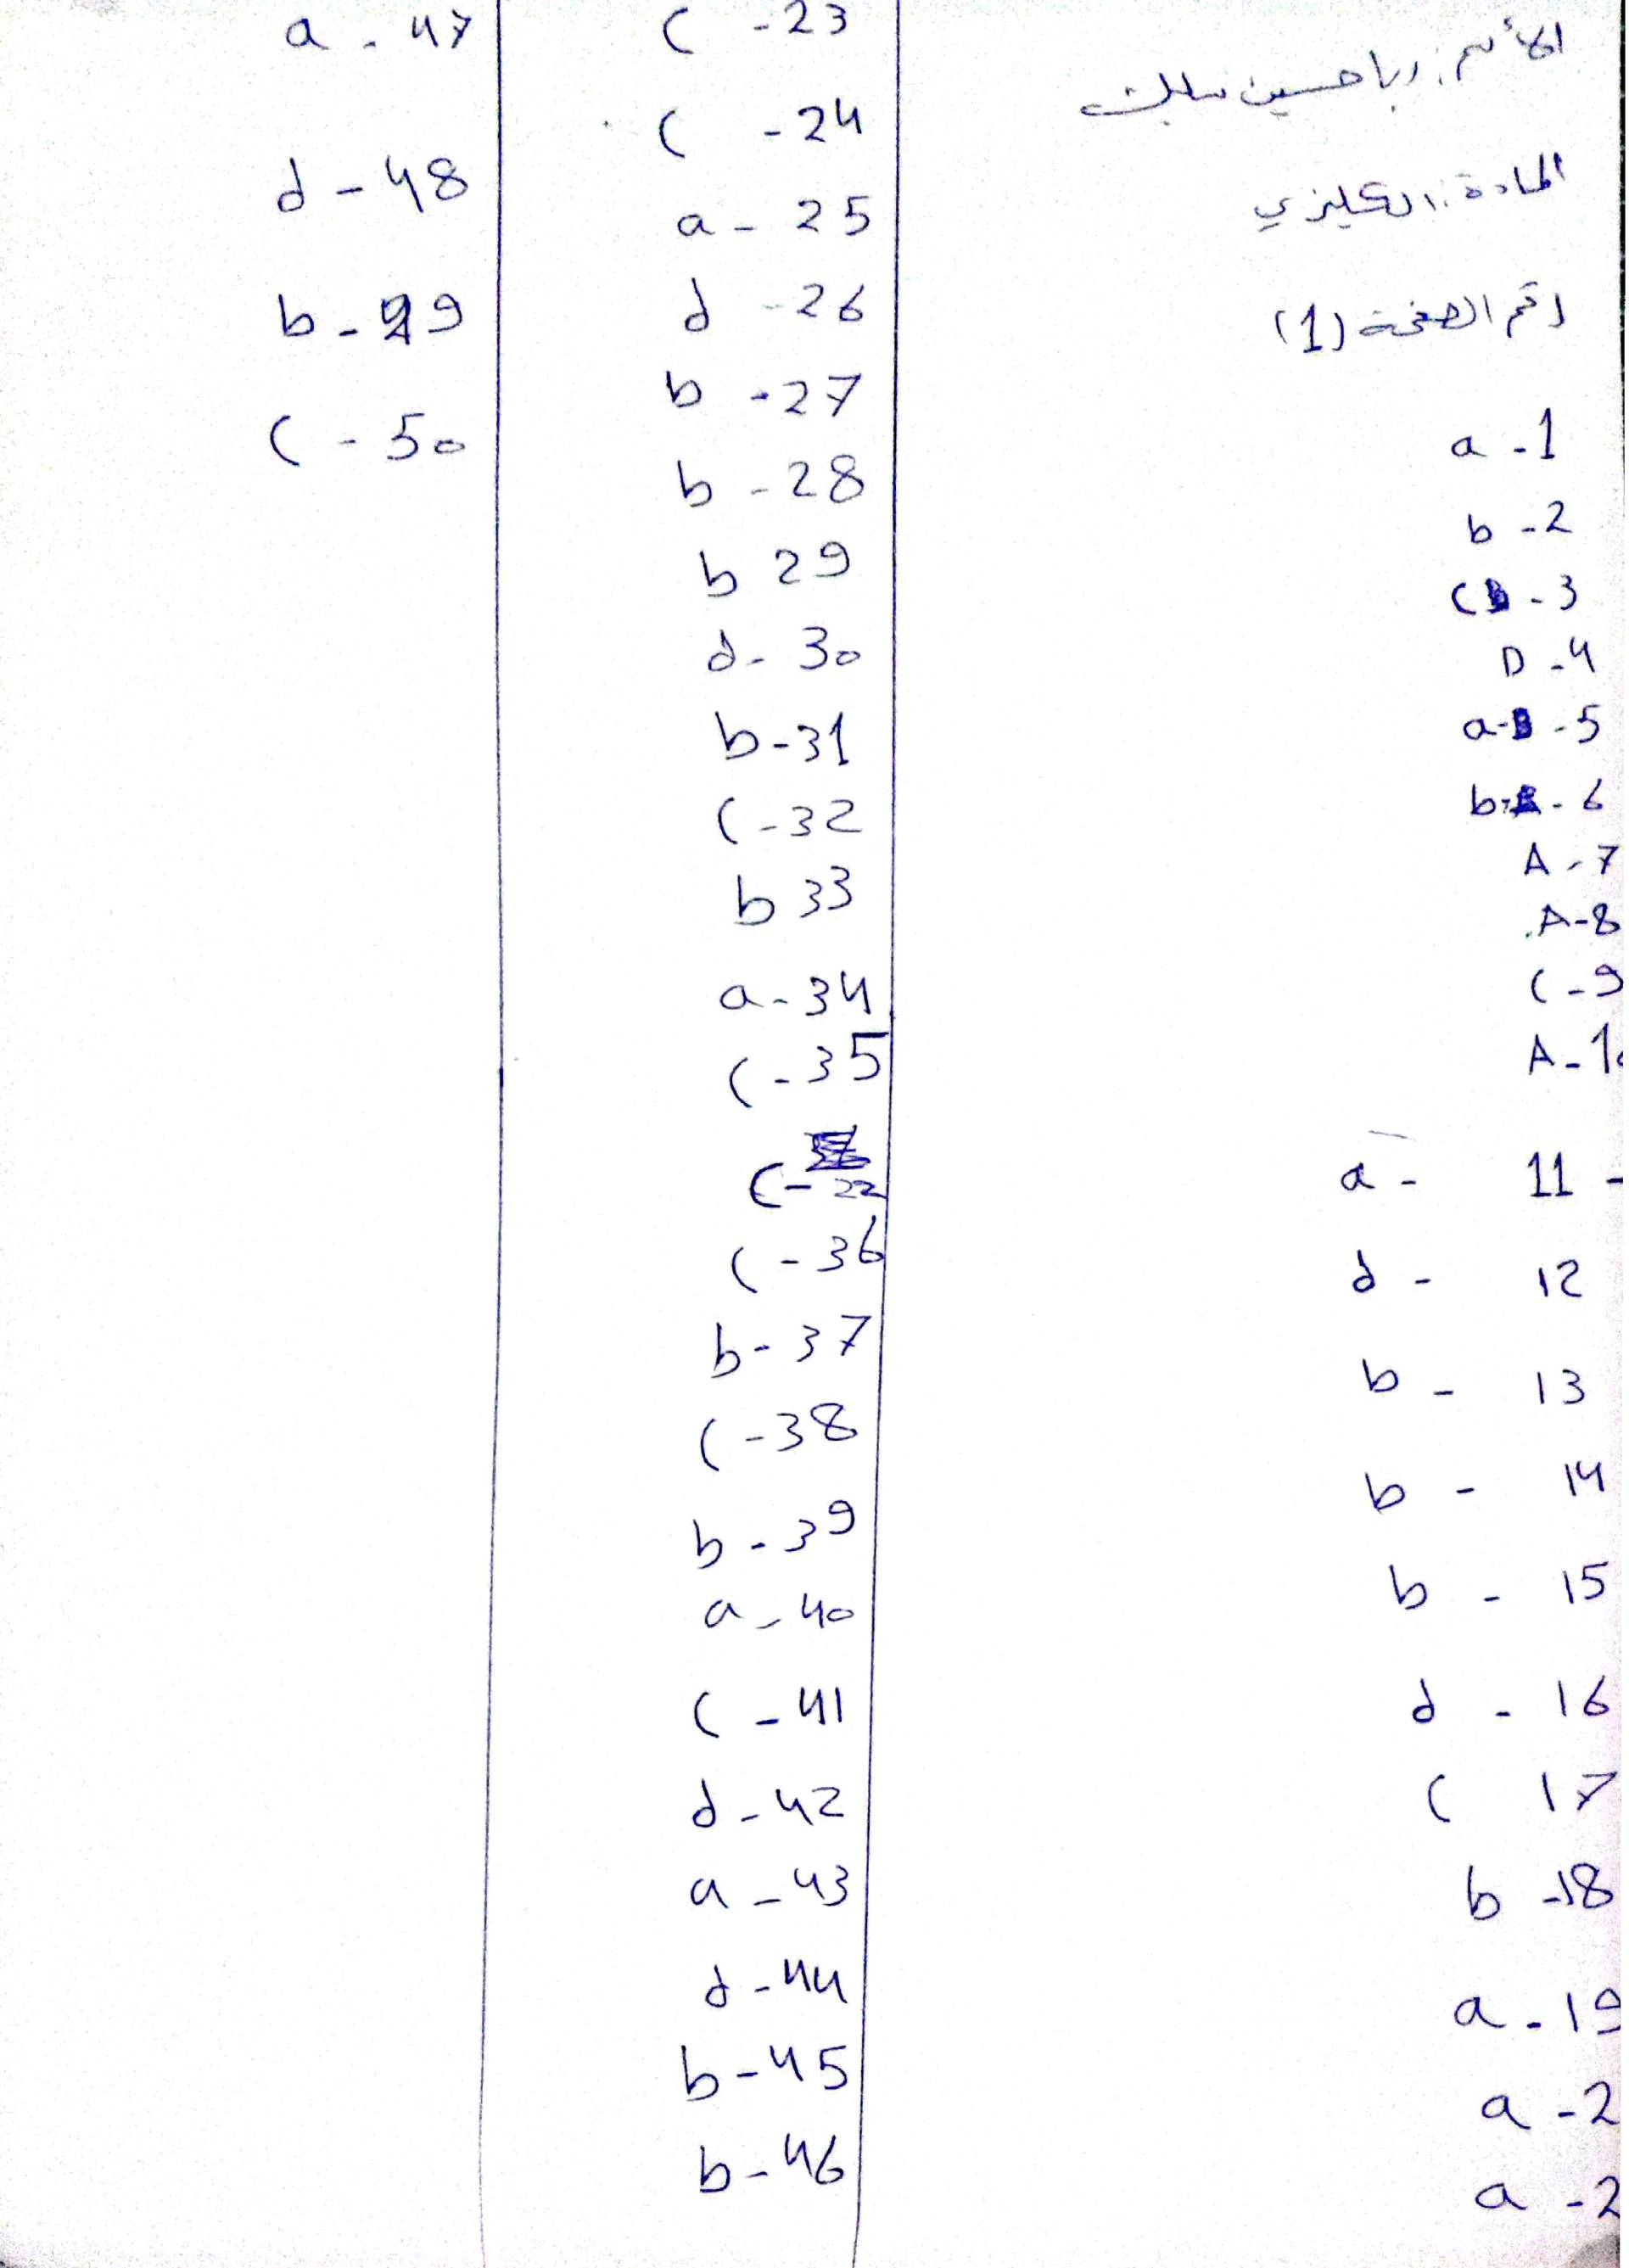 الأسم: ربا حسين
المادة: انكليزي
رقم الصفحة (1)
a -1
b -2
c -3
D -4
a- -5
b- -6
A -7
A-8
c -9
A-10
a - 11 -
d - 12
b - 13
b - 14
b - 15
d - 16
c 17
b -18
a - 19
a - 2
a - 2
c -23
c -24
a - 25
d - 26
b -27
b - 28
b 29
d- 30
b-31
c-32
b 33
a-34
c-35
c-22
c-36
b-37
c-38
b-39
a-40
c-41
d-42
a-43
d-44
b-45
b-46
a - 47
d-48
b-49
c-50